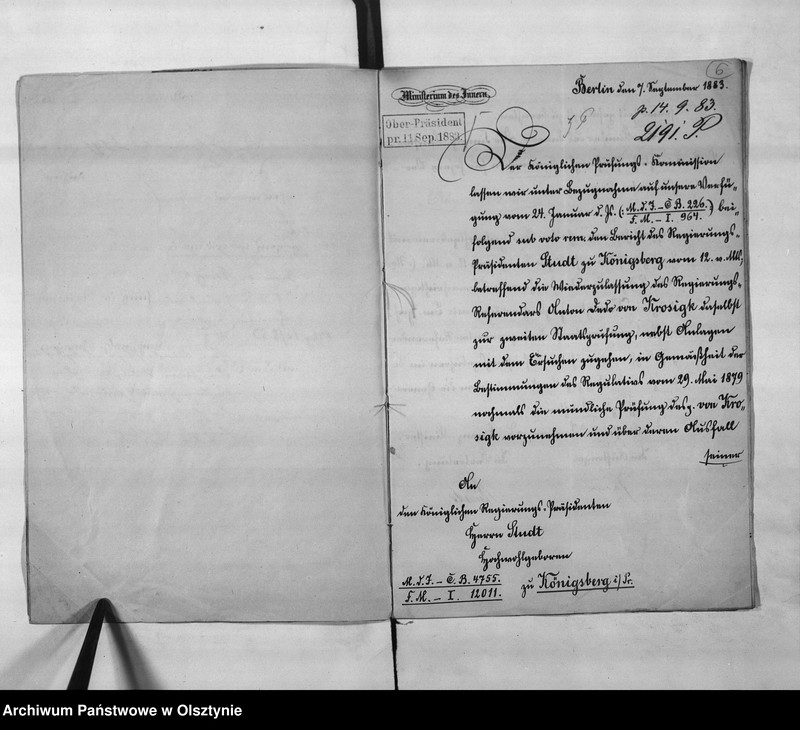 6
Ministerium des Innern.
Berlin den 7. September 1883.
p. 14. 9. 83.
2191. P.
Ober-Präsident
pr. 11 Sep. 1883
Der Königlichen Prüfungs-Kommission
lassen wir unter Bezugnahme auf unsere Verfü-
gung vom 24. Januar d. Js. (: M. d. I. – C. B. 226. :) bei-
F. M. – I. 964.
folgend sub voto rem. den Bericht des Regierungs-
Präsidenten Studt zu Königsberg vom 12. v. Mts,
betreffend die Wiederzulassung des Regierungs-
Referendars Anton Dedo von Krosigk daselbst
zur zweiten Staatsprüfung, nebst Anlagen
mit dem Ersuchen zugehen, in Gemäßheit der
Bestimmungen des Regulativs vom 29. Mai 1879
nochmals die mündliche Prüfung des p. von Kro-
sigk vorzunehmen und über deren Ausfall
seiner
An
den Königlichen Regierungs-Präsidenten
Herrn Studt
Hochwohlgeboren
zu Königsberg i/Pr.
M. d. I. – C. B. 4755.
F. M. – I. 12011.
Archiwum Państwowe w Olsztynie